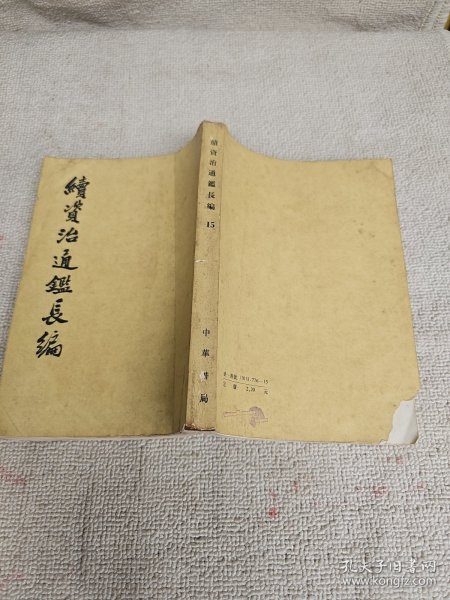 續資治通鑑長編
續資治通鑑長編 15
中華書局
統一書號
定價 2.20 元
孔夫子旧书网
www.kongfz.com